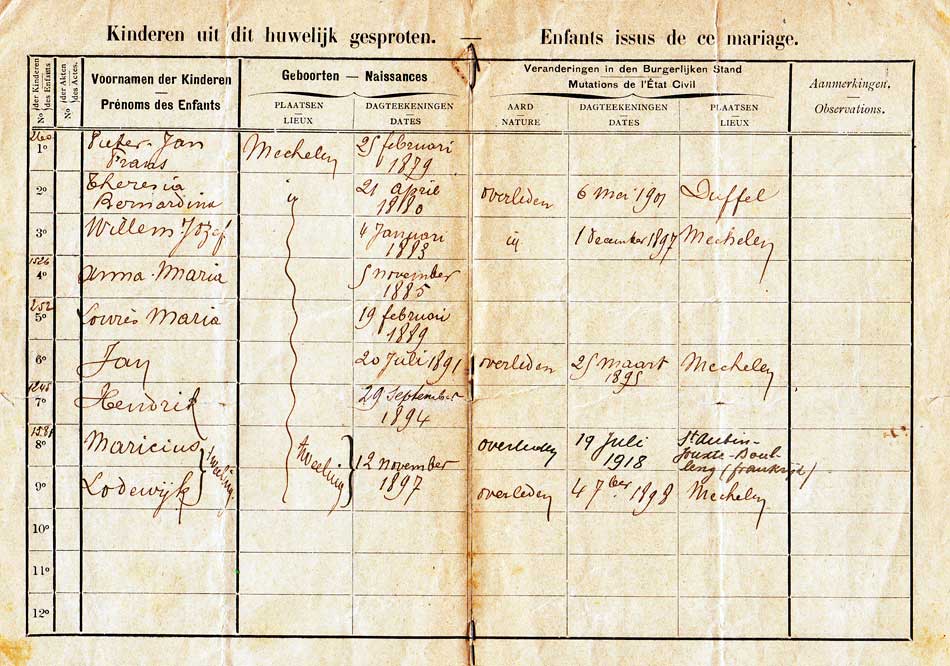 Kinderen uit dit huwelijk gesproten. — Enfants issus de ce mariage.
No der Kinderen des Enfants
No der Akten des Actes.
Voornamen der Kinderen
Prénoms des Enfants
Geboorten — Naissances
PLAATSEN LIEUX
DAGTEEKENINGEN DATES
Veranderingen in den Burgerlijken Stand
Mutations de l'État Civil
AARD NATURE
DAGTEEKENINGEN DATES
PLAATSEN LIEUX
Aanmerkingen.
Observations.
260
1o Pieter-Jan Mechelen 25 februari
Frans 1879
2o Theresia id 21 April overleden 6 Mei 1901 Duffel
Bernardina 1880
3o Willem Jozef 4 Januari id 1 December 1897 Mechelen
1883
1526
4o Anna-Maria 5 november
1885
252
5o Maria 19 februari
1889
6o Jan 20 Juli 1891 overleden 25 maart Mechelen
1895
1245
7o Hendrik 29 September
1894
1581
8o Maricius overleden 19 Juli St Aubin-
1918 Jouxte-Boul-
leng (frankrijk)
tweeling tweeling 12 november
1897
9o Lodewijk overleden 4 7ber 1898 Mechelen
10o
11o
12o